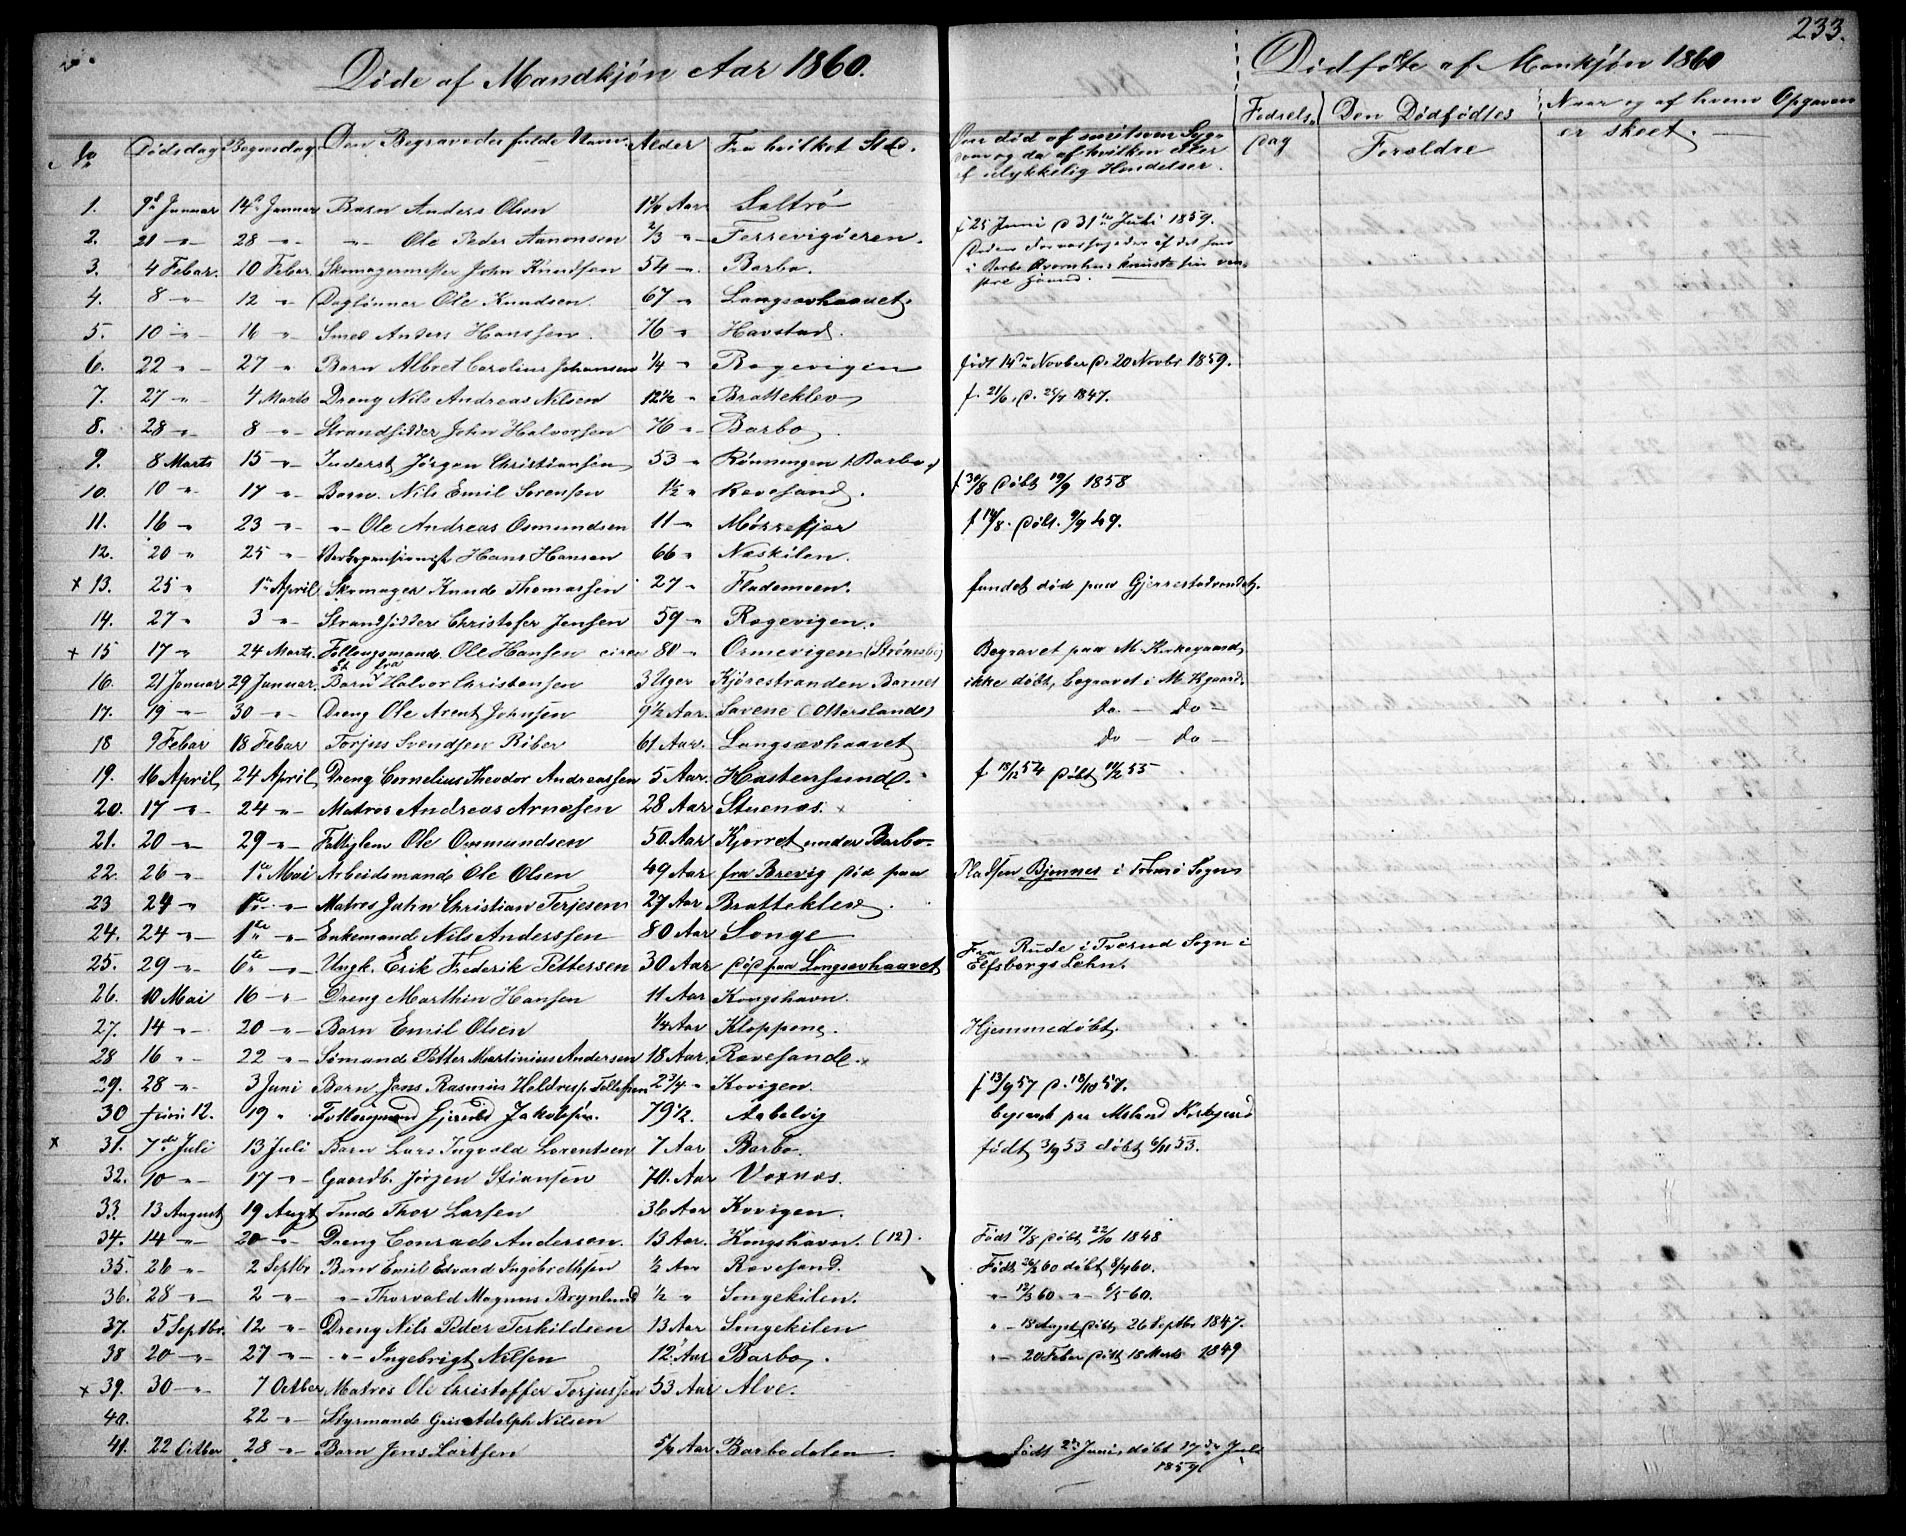 233.
Døde af Mandkjøn Aar 1860.
Dødføte af Mankjøn 1860
No Dødsdag Begravdag Den Begravedes fulde Navn. Alder Fra hvilket Sted.
Om død af smitsom Syg-
dom og da af hvilken eller
af ulykkelig Hendelser.
Fødsels Dag
Den Dødfødtes Foreldre
Naar og af hvem Opgaven er skeet.
1. 9de Januar 14de Januar Barn Anders Olsen Aar Saltrø
2. 21 -"- 28 -"- -"- Ole Peder Aanonsen 2/3 -"- Terrevigøeren. f 25 Juni D 31te Juli 1859.
3. 4 Febar. 10 Febar Skomagermester John Knudsen 54 -"- Barbo.
4. 8 -"- 12 -"- Daglønner Ole Knudsen 67 -"- Langsævhaavet
5. 10 -"- 16 -"- Smed Anders Hanssen 76 -"- Havstad.
6. 22 -"- 27 -"- Barn Albret Carolius Johansen 1/4 -"- Rægevigen født 14de Novber D. 20 Novbr 1859.
7. 27 -"- 4 Marts Dreng Nils Andreas Nilsen 12 1/2 -"- Bratteklev f. 21/6. D. 25/7 1847.
8. 28 -"- 8 -"- Strandsidder John Halvorsen 76 -"- Barbo
9. 8 Marts 15 -"- Inderst Jørgen Christiansen 53 -"- Rønningen (Barbo)
10. 10 -"- 17 -"- Barn Nils Emil Sørensen 1 1/2 -"- Revesand. f 30/8 Døbt 19/9 1858
11. 16 -"- 23 -"- -"- Ole Andreas Osmundsen 11 -"- Mørrefjær f 14/8. Døbt. 9/9 49.
12. 20 -"- 25 -"- Hans Hansen 66 -"- Næskilen.
x 13. 25 -"- 1te April Skomager Knud Thomassen 27 -"- Flademoen. fundet død paa Gjerrestadvandet.
14. 27 -"- 3 -"- Strandsidder Christofer Jensen 59 -"- Rægevigen.
x 15 17 -"- 24 Marts. Fattugsmand. Ole Hansen circa 80 -"- Ormevigen (Strømsbo) Begravet paa M. Kirkegaard
16. 21 Januar 29 Januar. Barn Halvor Christensen 3 Uger Kjørestranden Barnet ikke døbt, begravet i M. Kgaard.
17. 19 -"- 30 -"- Dreng Ole Arent Johnsen 9 1/2 Aar. Savene (Otterslands) Do - Do -
18 9 Febar 18 Febar Torjus Svendsen Riber 61 Aar. Langsævhaavet Do - Do -
19. 16 April 24 April Dreng Cornelius Theodor Andreassen 5 Aar. Hastensund. f 18/12 54 Døbt 11/2 55
20. 17 -"- 24 -"- Matros Andreas Arnesen 28 Aar Stuenæs.
21. 20 -"- 29 -"- Fattiglem Ole Osmundsen 50 Aar Kjerret under Barbo
22. 26 -"- 1te Mai Arbeidsmand Ole Olsen 49 Aar fra Brevig Død paa Pladsen Bjønnes i Tromø Sogn
23 24 -"- 1te -"- Matros John Christian Terjesen 27 Aar Bratteklev.
24. 24 -"- 1te -"- Enkemand Nils Anderssen 80 Aar Songe
25. 29 -"- 6te -"- Ungk. Erik Frederik Pettersen 30 Aar Død paa Langsævhaavet Fra Rude i Tværed Sogn i
Elfsborgs Læhn.
26. 10 Mai 16 -"- Dreng Marthin Hansen 11 Aar Kongshavn.
27. 14 -"- 20 -"- Barn Emil Olsen 1/4 Aar Kloppene. Hjemmedøbt.
28 16 -"- 22 -"- Sømand Petter Martinius Andersen 18 Aar. Revesand.
29. 28 -"- 3 Juni Barn Jens Rasmus Tellefsen 2 3/4 -"- Kovigen. f 13/9 57 D. 18/10 57.
30 Juni 12. 19 " Jakobsen. 79 1/2.
x 31. 7de Juli 13 Juli Barn Lars Ingvald Lorentsen 7 Aar Barbo. født 3/9 53 døbt 6/11 53.
32. 10 -"- 17 -"- Gaardb. Jørgen Stiansen 70. Aar Vaxnæs.
33. 13 August 19 Augt Thor Larsen 36 Aar Kovigen.
34. 14 -"- 20 -"- Dreng Conrad Andersen. 13 Aar. Kongshavn. (12). Født 17/8 Døbt 22/10 1848
35. 26 -"- 2 Septbr Barn Emil Edvard Ingebrethsen 1/2 Aar Revesand. Født 26/2 60 døbt 8/4 60.
36. 28 -"- 2 -"- -"- Thorvald Magnus Brynlund 1/2 " Songekilen. -"- 12/3 60 -"- 6/5 60.
37. 5 Septbr. 12 -"- Dreng Nils Peder Terkildsen 13 Aar Songekilen " - 18 August Døbt 26 Septbr 1847.
38 20 -"- 27 -"- -"- Ingebrigt Nilsen 12 Aar Barbo. -"- 20 Febar Døbt 18 Marts 1849
x 39. 30 -"- 7 Octber Matros Ole Christoffer Torjussen 53 Aar Alve.
40. 22 -"- Styrmand Adolph Nilsen
41. 22 Octber 28 -"- Barn Jens Larssen Aar Barbodalen født 2den Juni, døbt 17de Juli
1859